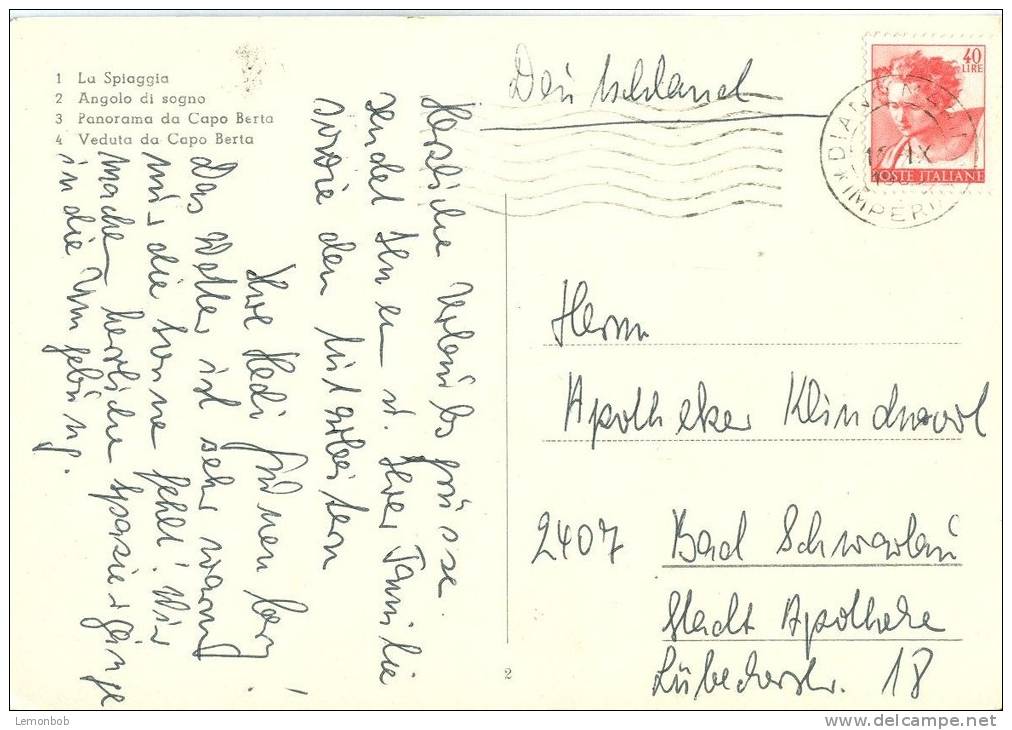 1 La Spiaggia
2 Angolo di sogno
3 Panorama da Capo Berta
4 Veduta da Capo Berta
Deutschland
40
LIRE
POSTE ITALIANE
IX
Herzliche Urlaubsgrüsse
sendet Ihnen u. Ihrer Familie
sowie den Mitarbeitern
Ihre Hedi
Das Wetter ist sehr warm
nur die Sonne fehlt! Wir
machen herrliche Spaziergänge
in die Umgebung.
Herrn
Apotheker
2407 Bad Schwartau
Stadt Apotheke
Lübeckerstr. 18
2
Lemonbob
www.delcampe.net